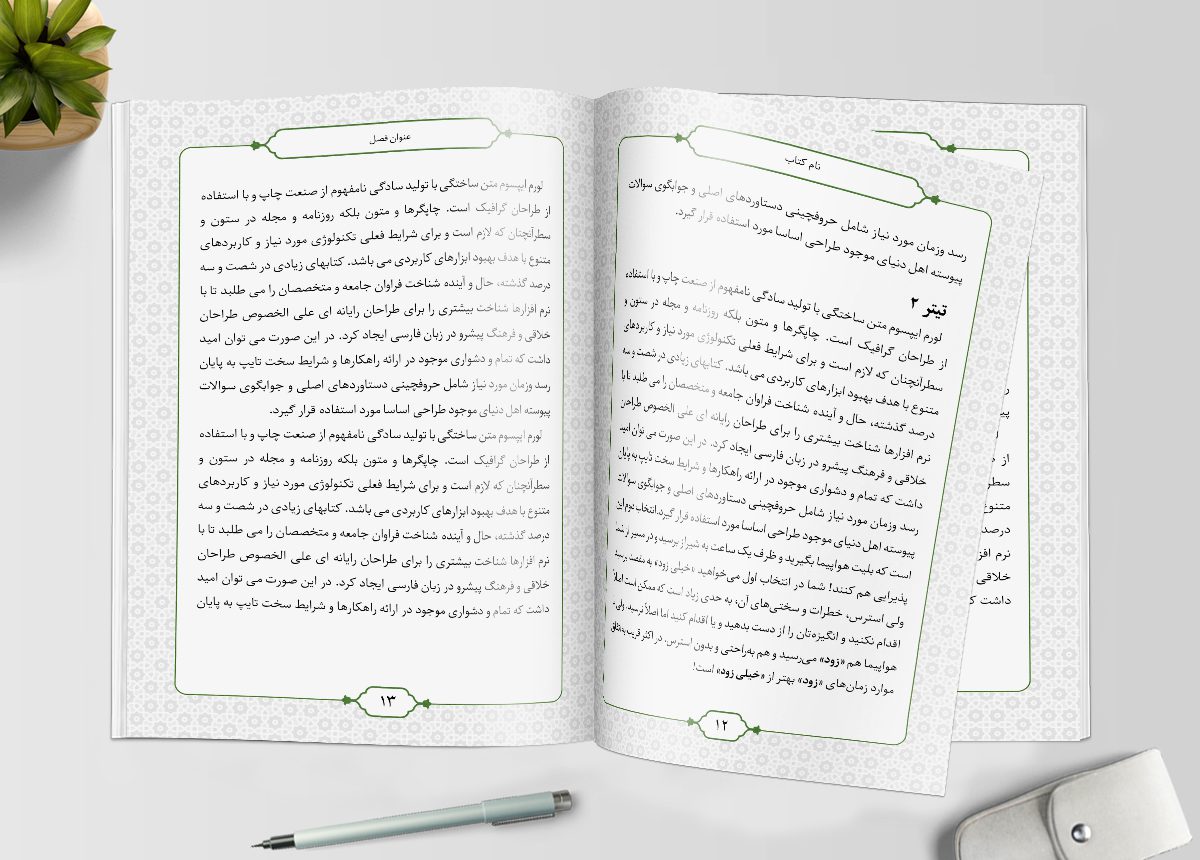 نام کتاب
رسد وزمان مورد نیاز شامل حروفچینی دستاوردهای اصلی و جوابگوی سوالات
پیوسته اهل دنیای موجود طراحی اساسا مورد استفاده قرار گیرد.
تیتر ۲
لورم ایپسوم متن ساختگی با تولید سادگی نامفهوم از صنعت چاپ و با استفاده
از طراحان گرافیک است. چاپگرها و متون بلکه روزنامه و مجله در ستون و
سطرآنچنان که لازم است و برای شرایط فعلی تکنولوژی مورد نیاز و کاربردهای
متنوع با هدف بهبود ابزارهای کاربردی می باشد. کتابهای زیادی در شصت و سه
درصد گذشته، حال و آینده شناخت فراوان جامعه و متخصصان را می طلبد تا با
نرم افزارها شناخت بیشتری را برای طراحان رایانه ای علی الخصوص طراحان
خلاقی و فرهنگ پیشرو در زبان فارسی ایجاد کرد. در این صورت می توان امید
داشت که تمام و دشواری موجود در ارائه راهکارها و شرایط سخت تایپ به پایان
رسد وزمان مورد نیاز شامل حروفچینی دستاوردهای اصلی و جوابگوی سوالات
پیوسته اهل دنیای موجود طراحی اساسا مورد استفاده قرار گیرد.انتخاب دوم این
است که بلیت هواپیما بگیرید و ظرف یک ساعت به شیراز برسید و در مسیر از شما
پذیرایی هم کنند! شما در انتخاب اول می‌خواهید «خیلی زود» به مقصد برسید
ولی استرس، خطرات و سختی‌های آن، به حدی زیاد است که ممکن است اصلا
اقدام نکنید و انگیزه‌تان را از دست بدهید و یا اقدام کنید اما اصلاً نرسید. ولی
هواپیما هم «زود» می‌رسید و هم به‌راحتی و بدون استرس. در اکثر قریب به‌اتفاق
موارد زمان‌های «زود» بهتر از «خیلی زود» است!
۱۲
عنوان فصل
لورم ایپسوم متن ساختگی با تولید سادگی نامفهوم از صنعت چاپ و با استفاده
از طراحان گرافیک است. چاپگرها و متون بلکه روزنامه و مجله در ستون و
سطرآنچنان که لازم است و برای شرایط فعلی تکنولوژی مورد نیاز و کاربردهای
متنوع با هدف بهبود ابزارهای کاربردی می باشد. کتابهای زیادی در شصت و سه
درصد گذشته، حال و آینده شناخت فراوان جامعه و متخصصان را می طلبد تا با
نرم افزارها شناخت بیشتری را برای طراحان رایانه ای علی الخصوص طراحان
خلاقی و فرهنگ پیشرو در زبان فارسی ایجاد کرد. در این صورت می توان امید
داشت که تمام و دشواری موجود در ارائه راهکارها و شرایط سخت تایپ به پایان
رسد وزمان مورد نیاز شامل حروفچینی دستاوردهای اصلی و جوابگوی سوالات
پیوسته اهل دنیای موجود طراحی اساسا مورد استفاده قرار گیرد.
لورم ایپسوم متن ساختگی با تولید سادگی نامفهوم از صنعت چاپ و با استفاده
از طراحان گرافیک است. چاپگرها و متون بلکه روزنامه و مجله در ستون و
سطرآنچنان که لازم است و برای شرایط فعلی تکنولوژی مورد نیاز و کاربردهای
متنوع با هدف بهبود ابزارهای کاربردی می باشد. کتابهای زیادی در شصت و سه
درصد گذشته، حال و آینده شناخت فراوان جامعه و متخصصان را می طلبد تا با
نرم افزارها شناخت بیشتری را برای طراحان رایانه ای علی الخصوص طراحان
خلاقی و فرهنگ پیشرو در زبان فارسی ایجاد کرد. در این صورت می توان امید
داشت که تمام و دشواری موجود در ارائه راهکارها و شرایط سخت تایپ به پایان
۱۳
از
متنوع
درصد
خلاقی
داشت